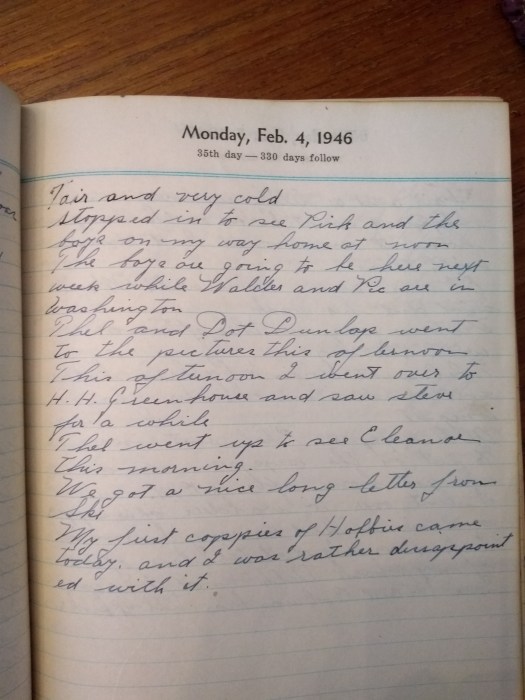 Monday, Feb. 4, 1946
35th day — 330 days follow
Fair and very cold
stopped in to see Pick and the
boys on my way home at noon
The boys are going to be here next
week while Walder and Pic are in
Washington
Thel and Dot Dunlap went
to the pictures this afternoon
This afternoon I went over to
H. H. Greenhouse and saw steve
for a while
Thel went up to see Eleanor
this morning.
We got a nice long letter from
Ski
My first coppies of Hobbies came
today. and I was rather dissappoint
ed with it.